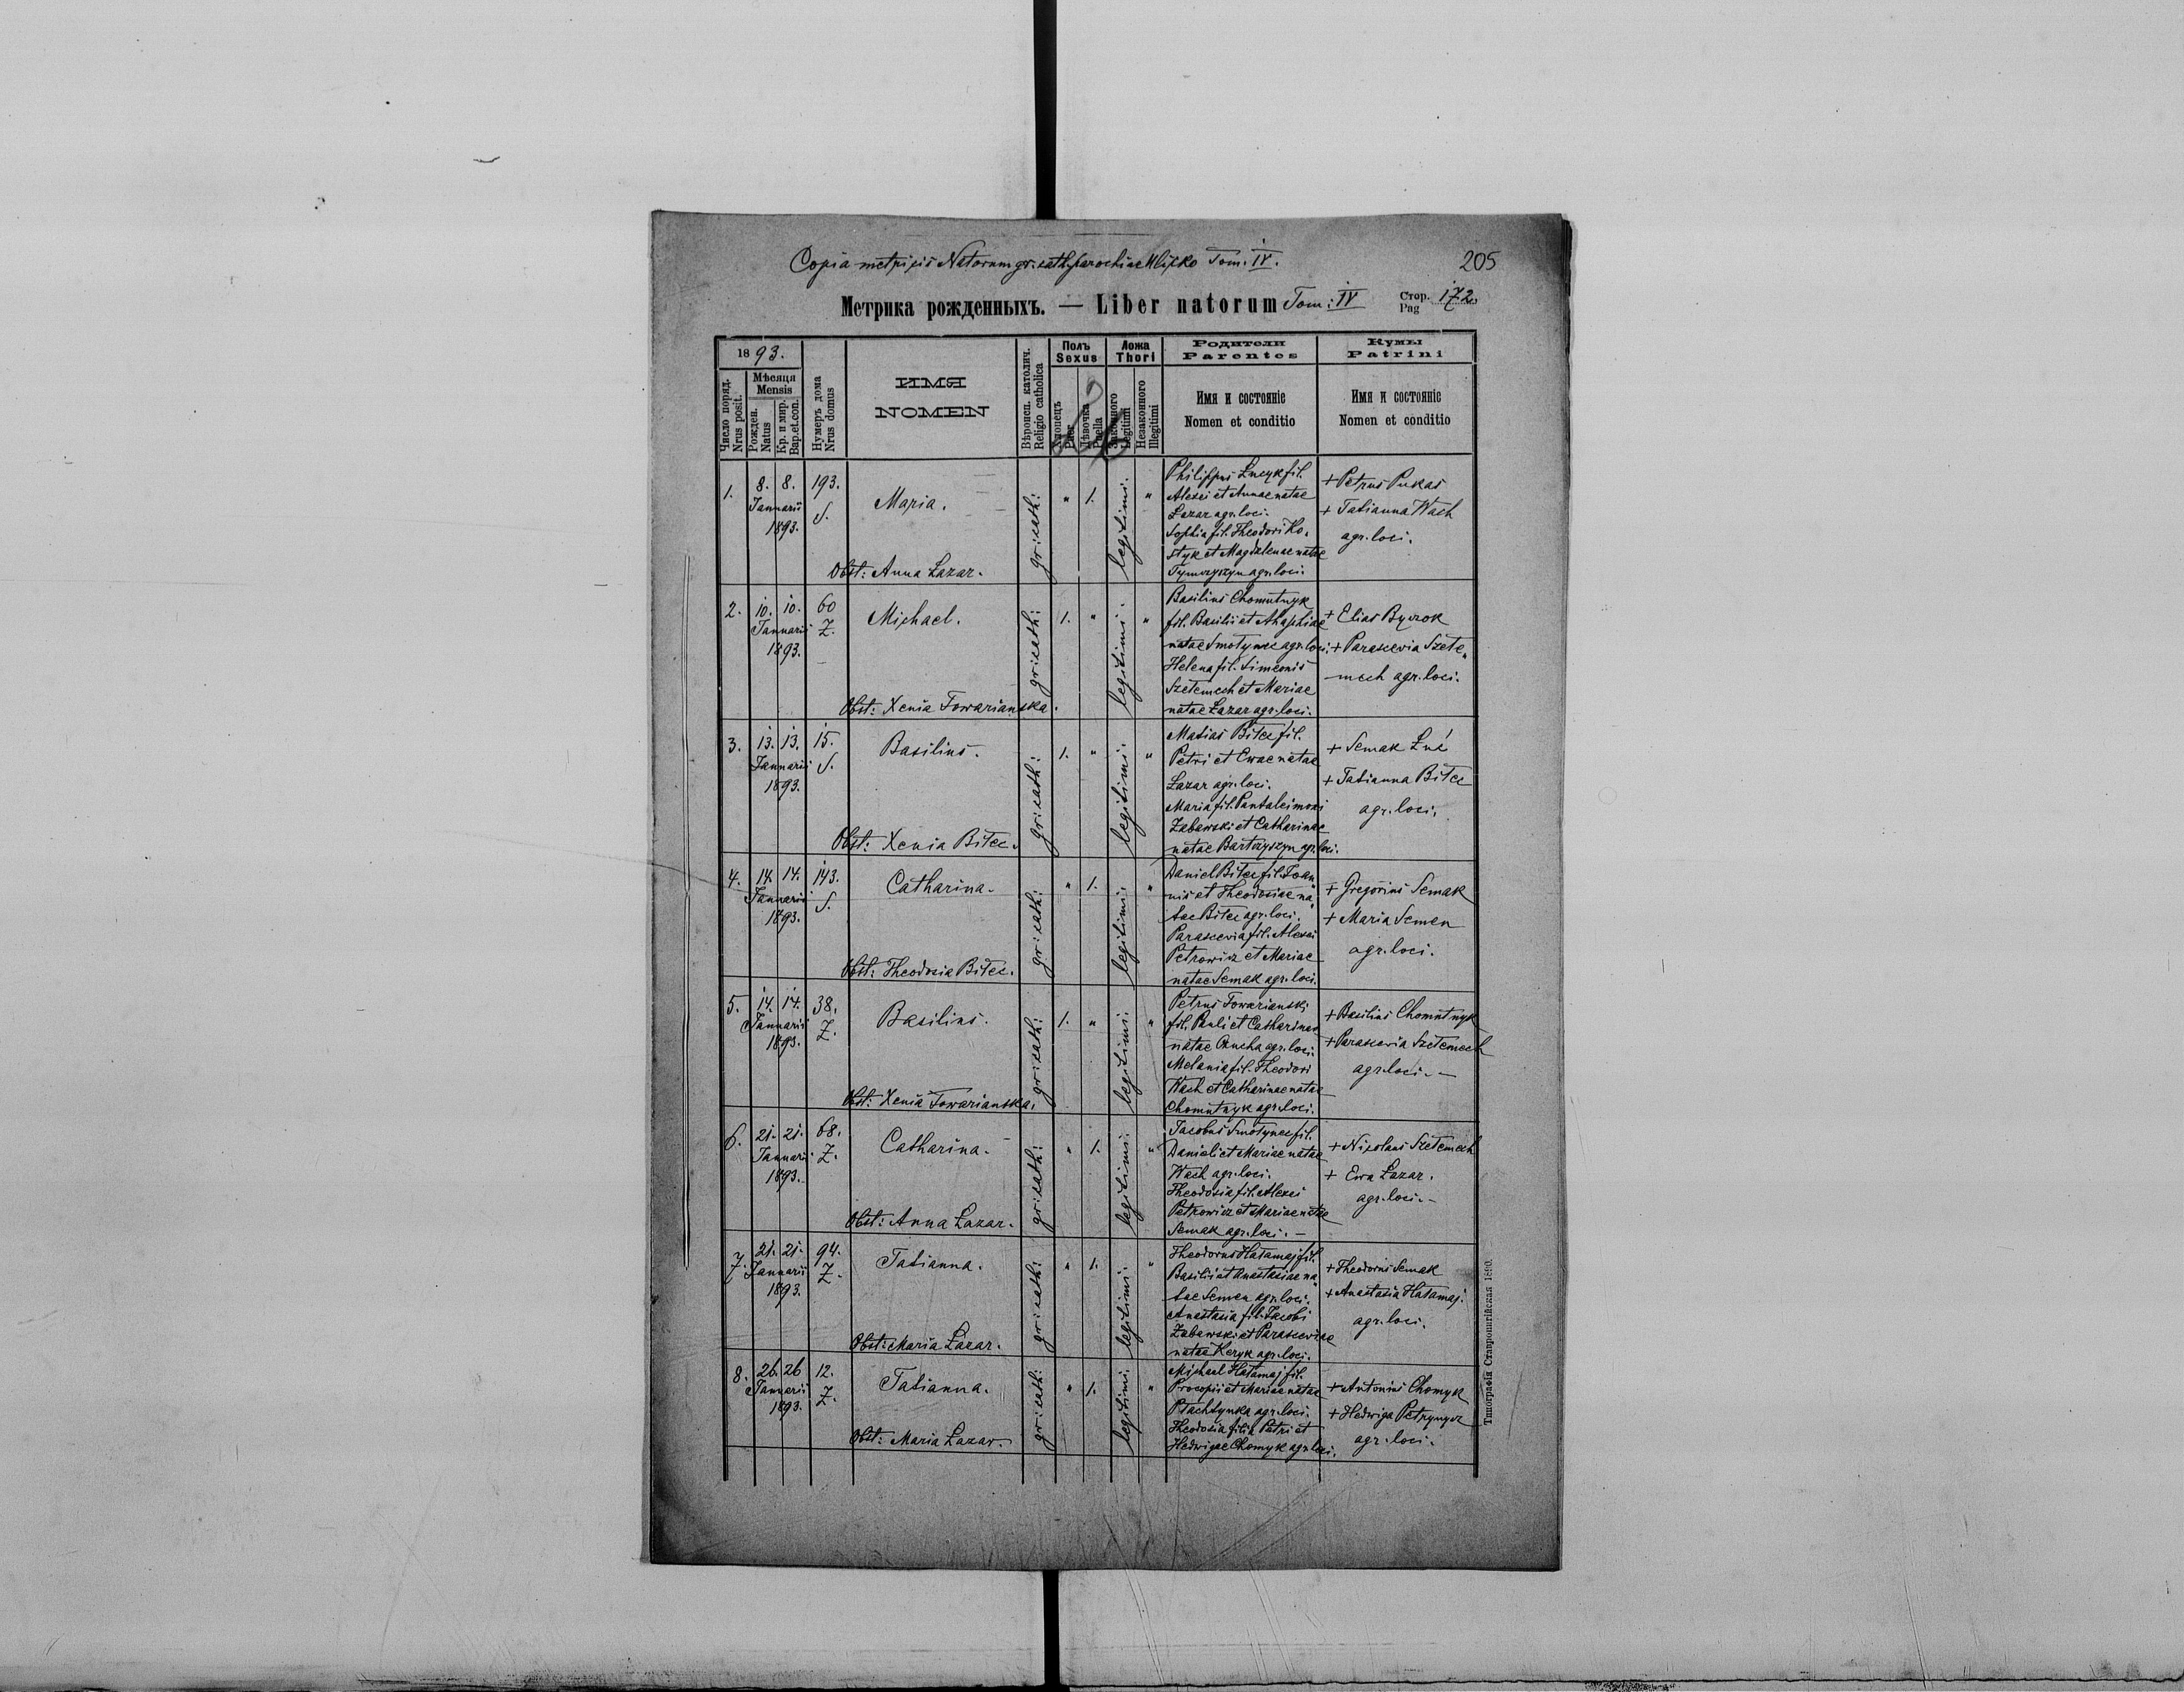 Copia metricis Natorum gr. cath. parochiae Tom. IV.
205
Метрика рожденныхъ. — Liber natorum Tom: IV
Стор. Pag 172.
1893.
Число поряд. Nrus posit.
Мѣсяця Mensis
Рожден. Natus
Кр. и мир. Bap. et. con.
Нумеръ дома Nrus domus
ИМЯ
NOMEN
Вѣроисп. католич. Religio catholica
Полъ Sexus
Puer
Дѣвочка Puella
Ложа Thori
Законного Legitimi
Незаконного Illegitimi
Родители
Parentes
Имя и состояніе
Nomen et conditio
Кумы
Patrini
Имя и состояніе
Nomen et conditio
1. 8. 8. Januarii 1893. 193. S.
Maria.
Obst: Anna Lazar.
gr: cath: " 1. legitimi. "
Philippus Łucyk fil.
Alexei et Annae natae
Lazar agr. loci.
Sophia fil. Theodori Ko-
styk et Magdalenae natae
Tymczyszyn agr. loci.
+ Petrus Pukas
+ Tatianna Wach
agr. loci.
2. 10. 10. Januarii 1893. 60 Z.
Michael.
Obst: Xenia Towarianska.
gr: cath: 1. " legitimi. "
Basilius Chomutnyk
fil. Basilii et Ahaphiae
natae Smotynec agr. loci.
Helena fil. Simeonis
Szetemech et Mariae
natae Lazar agr. loci.
+ Elias Byczok
+ Parascevia Szete-
mech agr. loci.
3. 13. 13. Januarii 1893. 15. S.
Basilius.
Obst: Xenia Bitec.
gr: cath: 1. " legitimi. "
Matias Bitec fil.
Petri et Ewae natae
Lazar agr. loci.
Maria fil. Pantaleimoni
Zabawski et Catharinae
natae Bartczyszyn agr. loci.
+ Semak Łuć
+ Tatianna Bitec
agr. loci.
4. 14. 14. Januarii 1893. 143. S.
Catharina.
Obst: Theodosia Bitec.
gr: cath: " 1. legitimi. "
Daniel Bitec fil. Joan
nis et Theodosiae na"
tae Bitec agr. loci.
Parascevia fil. Alexei
Petrowicz et Mariae
natae Semak agr. loci.
+ Gregorius Semak
+ Maria Semen
agr. loci.
5. 14. 14. Januarii 1893. 38. Z.
Basilius.
Obst: Xenia Towarianska.
gr: cath: 1. " legitimi. "
Petrus Towarianski
fil. Pauli et Catharinae
natae agr. loci.
Melania fil. Theodori
Wach et Catharinae natae
Chomutnyk agr. loci.
+ Basilius Chomutnyk
+ Parascevia Szetemech
agr. loci. —
6. 21. 21. Januarii 1893. 68. Z.
Catharina.
Obst: Anna Lazar.
gr: cath: " 1. legitimi. "
Jacobus Smotynec fil.
Danieli et Mariae natae
Wach agr. loci.
Theodosia fil. Alexei
Petrowicz et Mariae natae
Semak agr. loci. —
+ Nicolaus Szetemech
+ Ewa Lazar.
agr. loci. —
7. 21. 21. Januarii 1893. 94. Z.
Tatianna.
Obst: Maria Lazar.
gr: cath: " 1. legitimi. "
Theodorus Hałamaj fil.
Basilii et Anastasiae na"
tae Semen agr. loci.
Anastasia fil. Jacobi
Zabawski et Parasceviae
natae Keryk agr. loci.
+ Theodorus Semak
+ Anastasia Hałamaj.
agr. loci.
8. 26. 26 Januarii 1893. 12. Z.
Tatianna.
Obst: Maria Lazar.
gr: cath: " 1. legitimi. "
Michael Hałamaj fil.
Procopii et Mariae natae
Ptachtynka agr. loci.
Theodosia filia Petri et
Hedwigae Chomyk agr. loci.
+ Antonius Chomyk
+ Hedwiga Petrynycz
agr. loci.
Типографія Ставропигійская 1890.